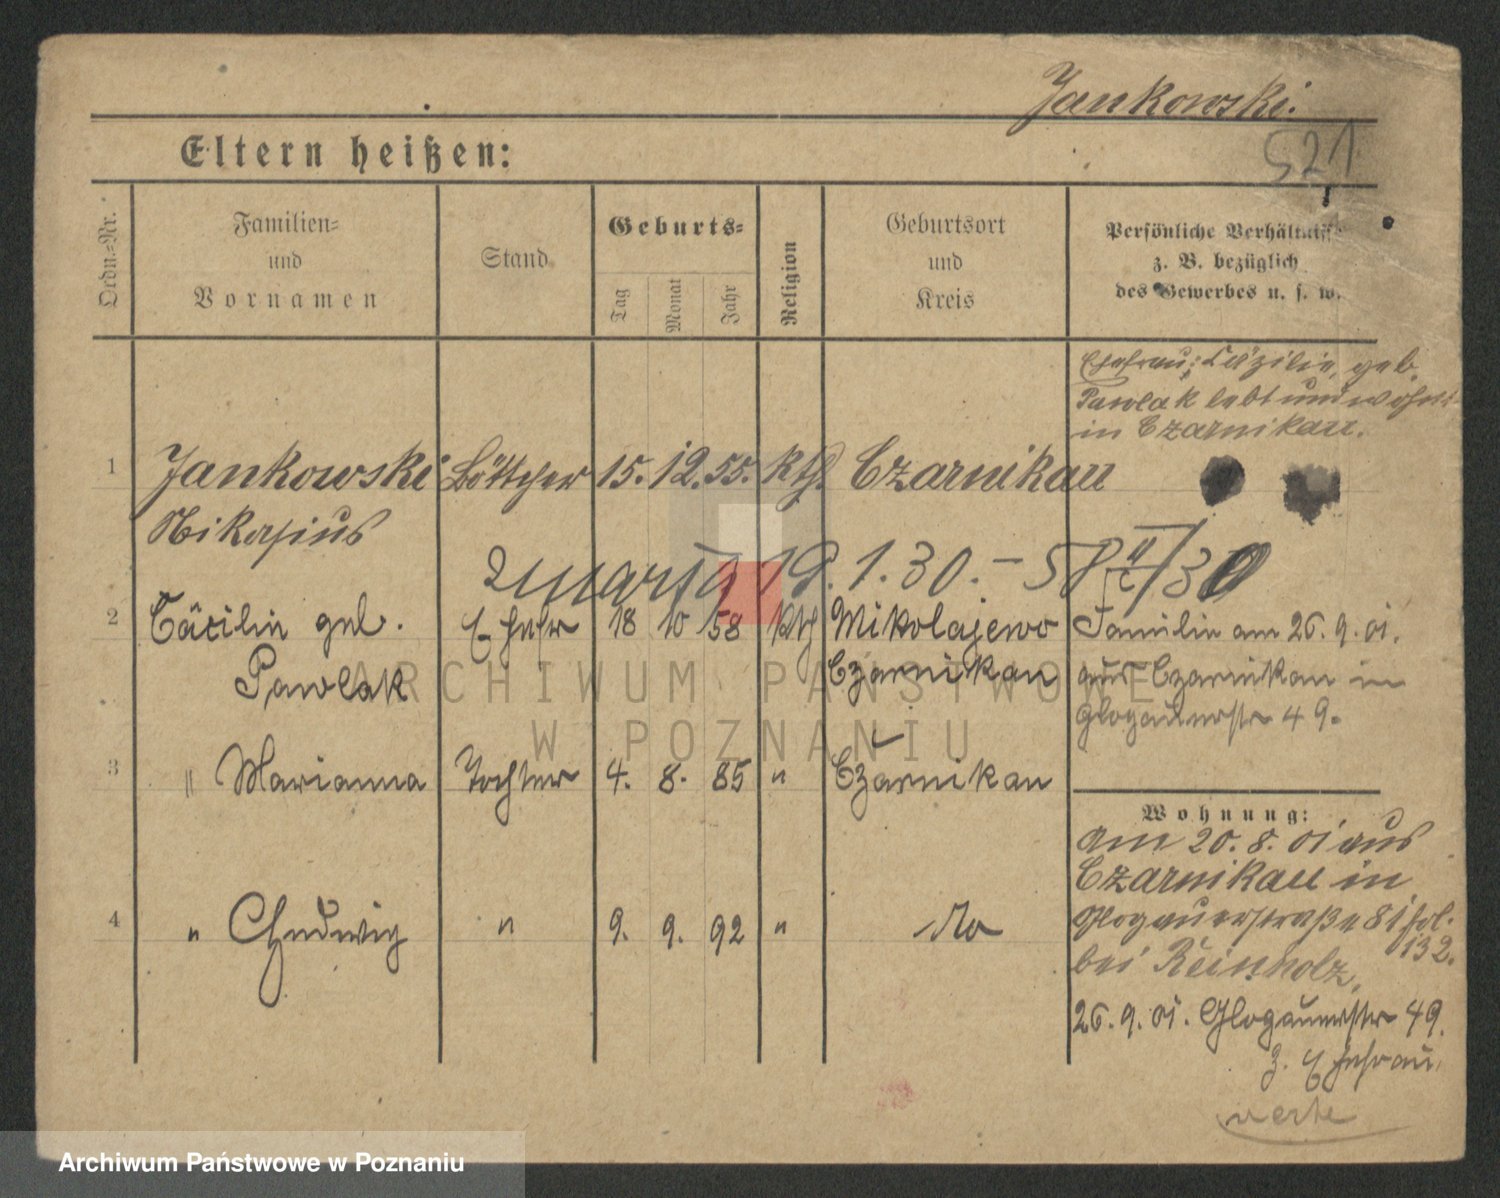 Jankowski.
521
Eltern heißen:
Ordn.-Nr.
Familien-
und
Vornamen
Stand
Geburts-
Tag
Monat
Jahr
Religion
Geburtsort
und
Kreis
Persönliche Verhältnisse
z. B. bezüglich
des Gewerbes u. s. w.
Ehefrau: Cäzilie, geb.
Pawlak lebt und wohnt
in Czarnikau.
1 Jankowski Böttcher 15. 12. 55. kth. Czarnikau
Nikasius
zmarła 19. 1. 30. – 58 II/30
2 Cäcilie geb. Ehefr 18 10 58 kth Mikolajewo Familie am 26. 9. 01.
Pawlak Czarnikau aus Czarnikau in
Glogauerstr 49.
3 " Marianna Tochter 4. 8. 85 " Czarnikau
Wohnung:
am 20. 8. 01 aus
Czarnikau in
Glogauerstraße 81 fol.
132.
4 " Ludwig " 9. 9. 92 " do
bei Reinholz,
26. 9. 01. Glogauerstr 49.
z. Ehefrau.
verte
ARCHIWUM PAŃSTWOWE
W POZNANIU
Archiwum Państwowe w Poznaniu